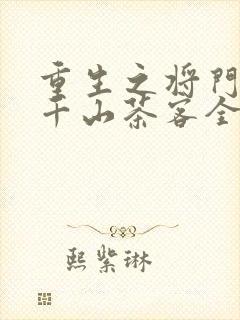 重生之将门
千山茶客全
熙紫琳